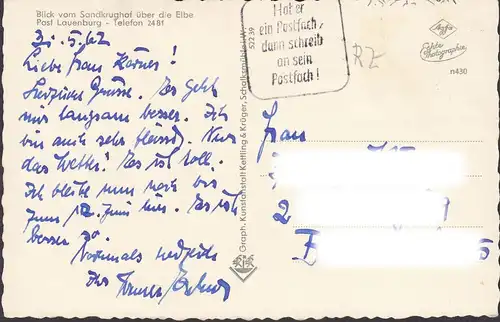 Blick vom Sandkrughof über die Elbe
Post Lauenburg - Telefon 2481
31.5.62
Liebe Frau Körner!
Herzliche Grüsse. Es geht
nur langsam besser. Ich
bin auch sehr fleissig. Nur
das Wetter! Es ist toll.
Ich bleibe nun noch bis
zum 12. Juni hier. Es ist
besser so.
Nochmals herzlichst
Ihr
Hat er
ein Postfach,
dann schreib
an sein
Postfach!
RZ
Agfa
Echte
Photographie
n430
522 39
Graph. Kunstanstalt Kettling & Krüger, Schalksmühle i. W.
K&K
Frau
2